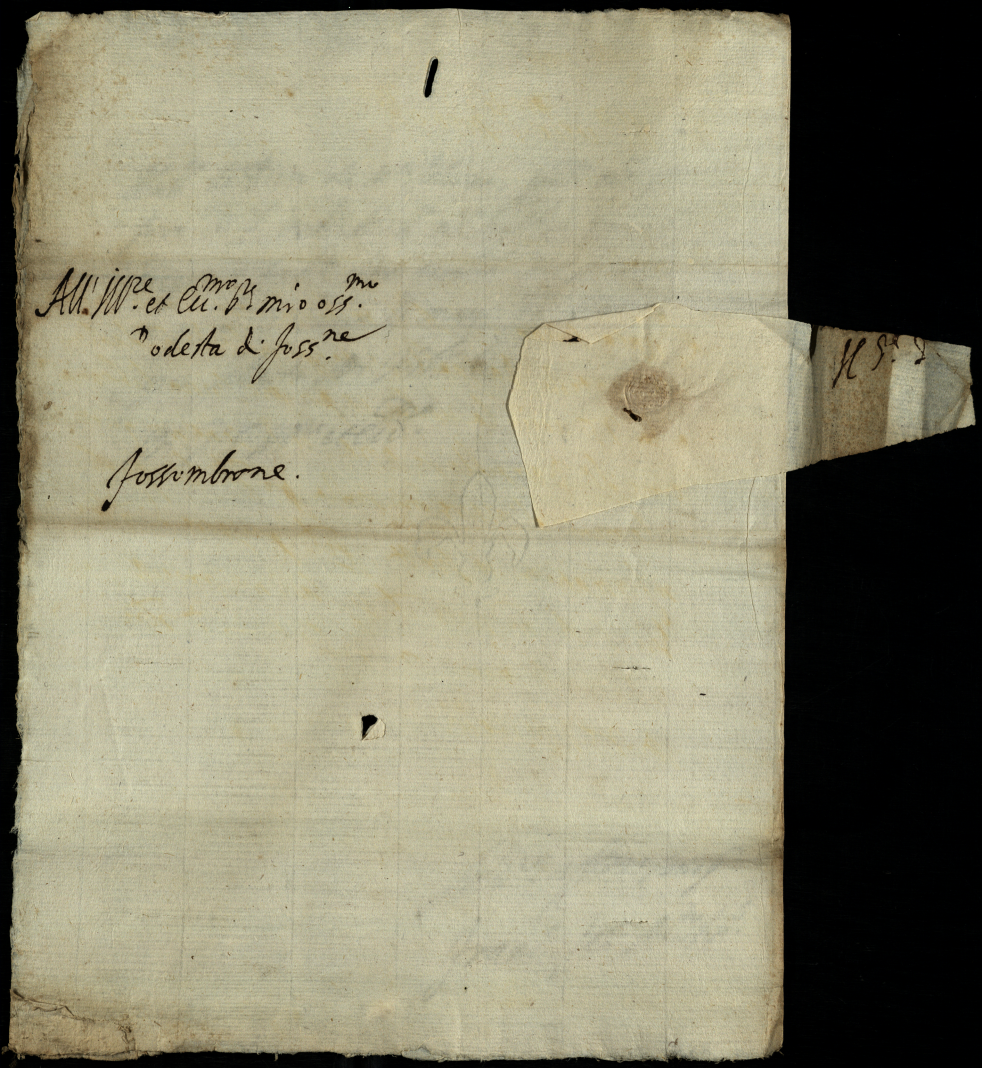 All' Ill.re et Ecc.mo Sr mio oss.mo
Podesta di foss.ne
fossombrone.